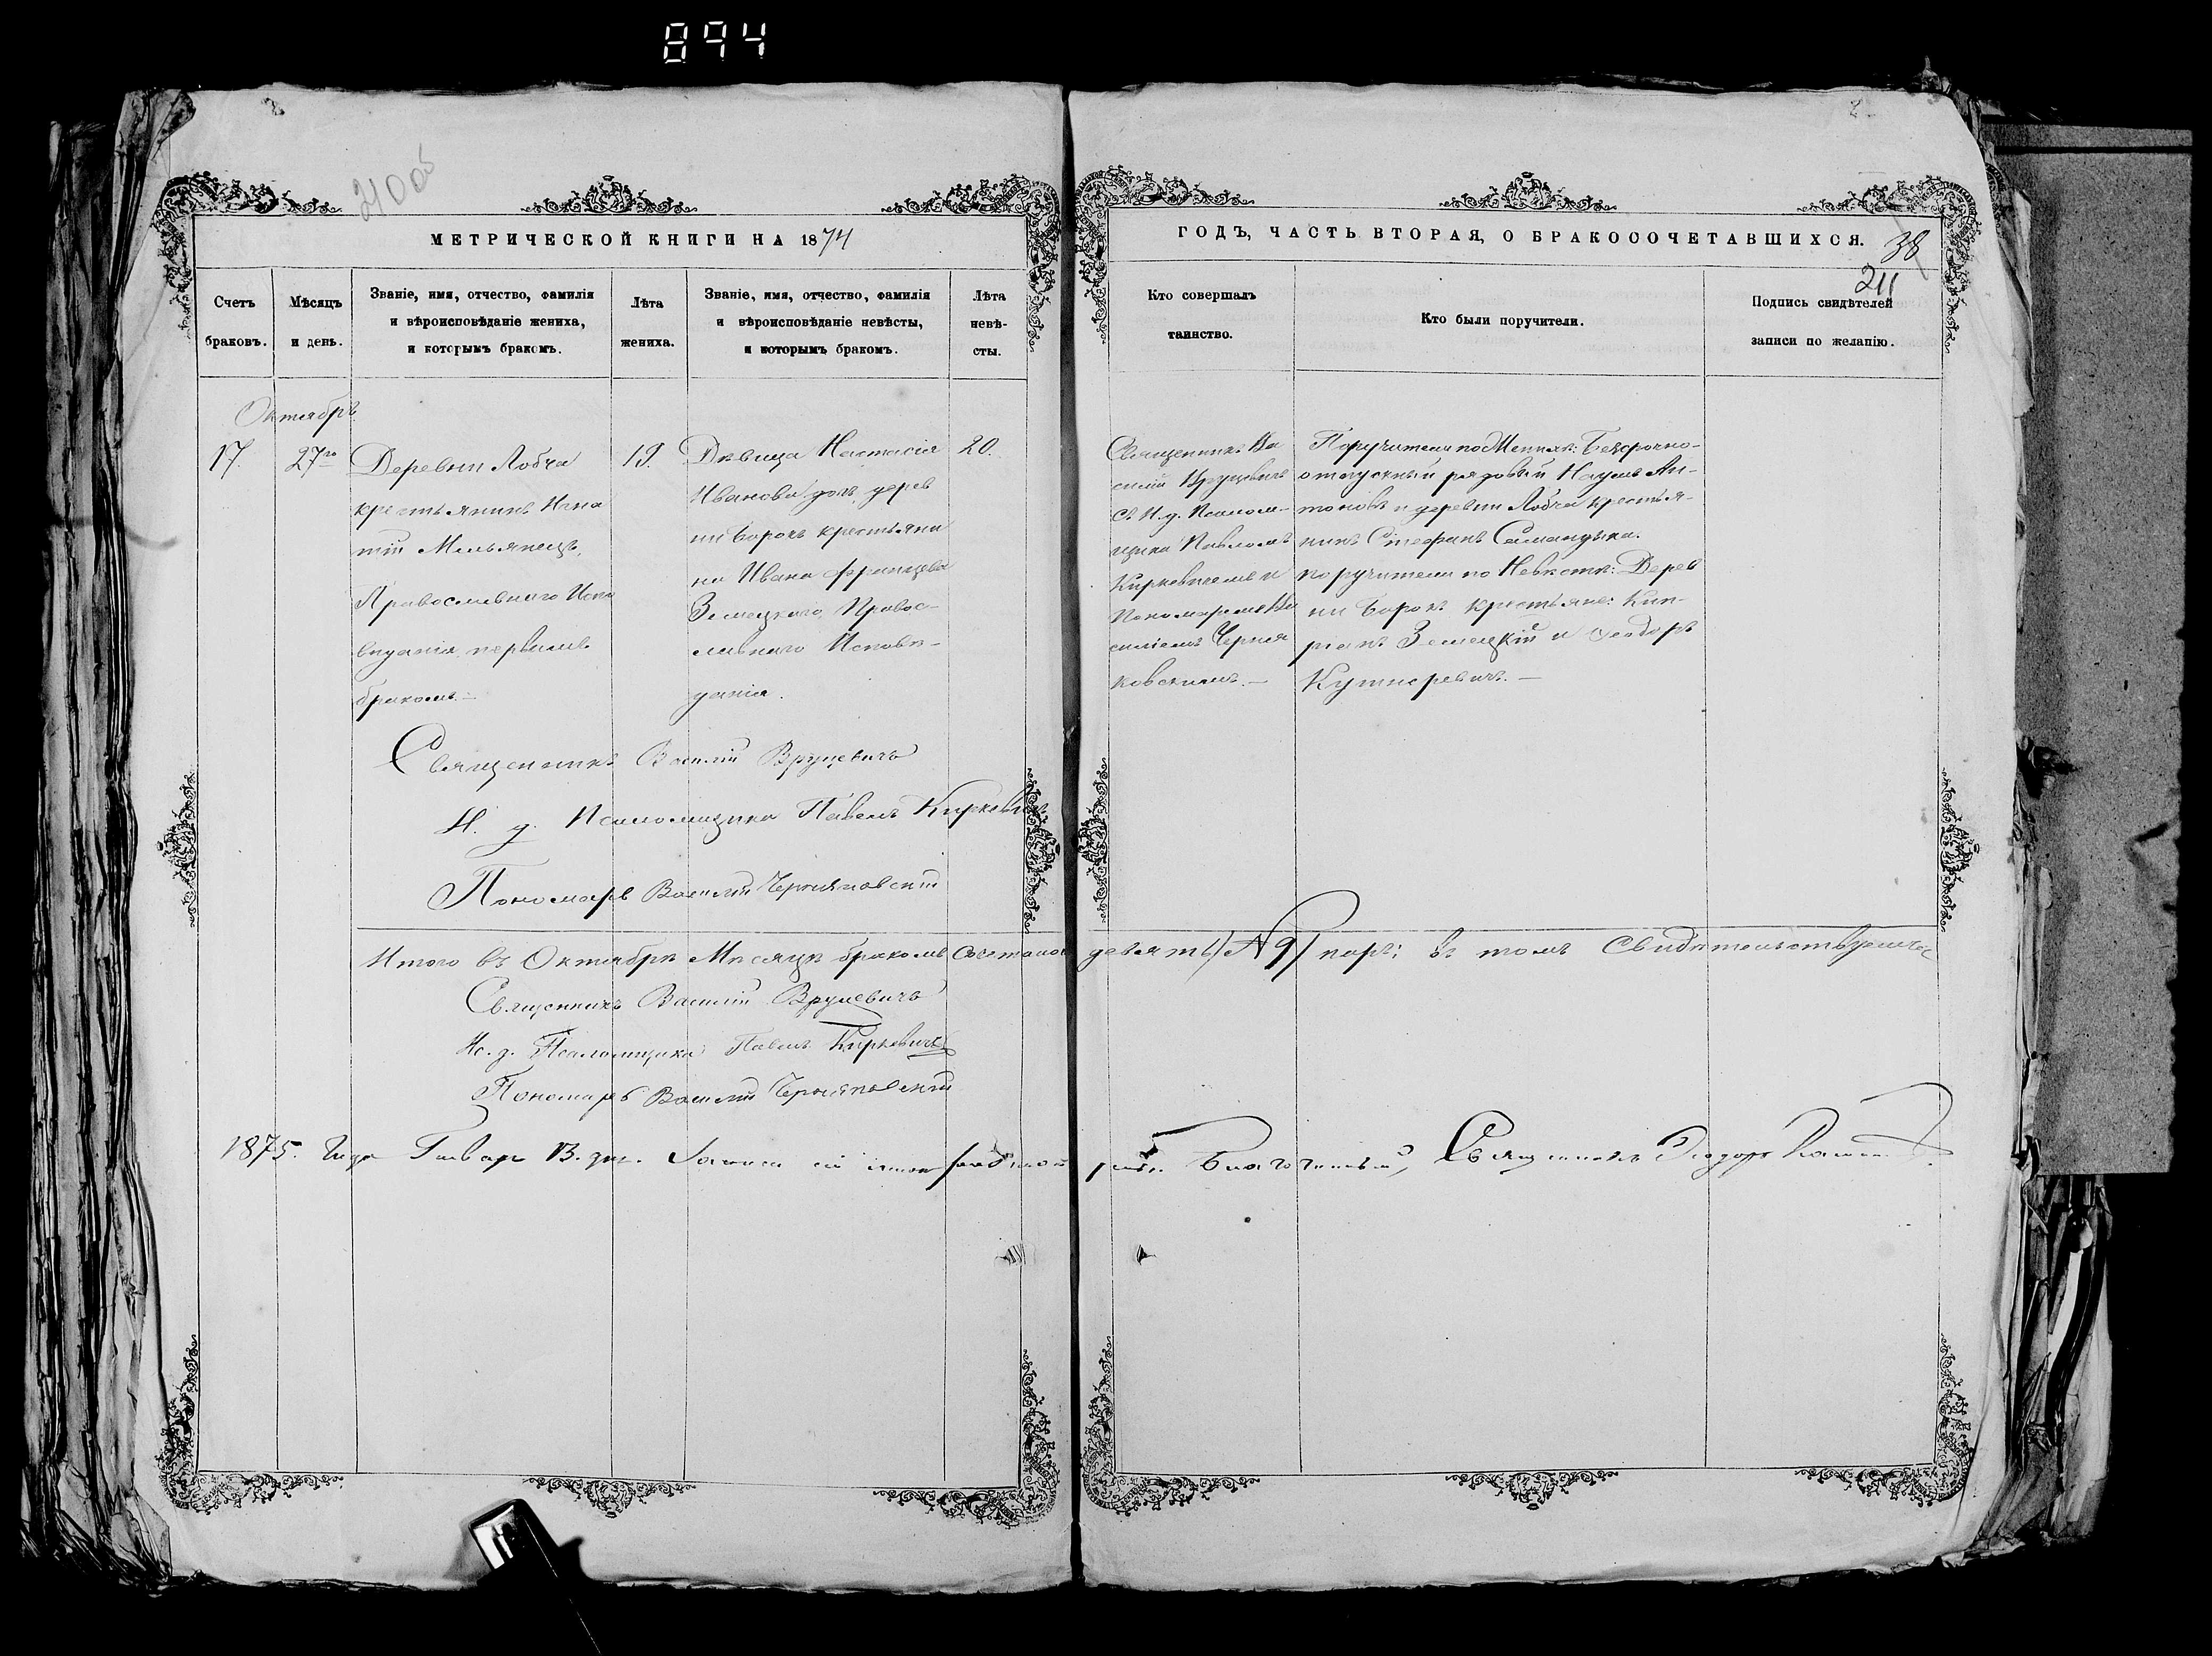 894
2
2
МЕТРИЧЕСКОЙ КНИГИ НА 1874
ГОДЪ, ЧАСТЬ ВТОРАЯ, О БРАКОСОЧЕТАВШИХСЯ.
38
211
Счетъ
браковъ.
Мѣсяцъ
и день.
Званіе, имя, отчество, фамилія
и вѣроисповѣданіе жениха,
и которымъ бракомъ.
Лѣта
жениха.
Званіе, имя, отчество, фамилія
и вѣроисповѣданіе невѣсты,
и которымъ бракомъ.
Лѣта
невѣ-
сты.
Кто совершалъ
таинство.
Кто были поручители.
Подпись свидѣтелей
записи по желанію.
Октябрь
17.
27го
Деревни Лобча
крестьянинъ Игна
тій Мельянецъ,
Православнаго Испо
вѣданія первымъ
бракомъ.—
19.
Дѣвица Настасія
Иванова дочь, дерев
ни Борокъ крестьяни
на Ивана Францева
Земецкаго, Правос-
лавнаго Исповѣ-
данія.
20.
Священникъ Ва
силій Вруцевичъ
съ И. д. Псалом-
щика Павломъ
Киркевичемъ и
Пономаремъ Ва
силіемъ Черня
ковскимъ.—
Поручители по Женихѣ: Безсрочно-
отпускный рядовый Наумъ Ан-
тоновъ и деревни Лобча крестья-
нинъ Стефанъ
поручители по Невѣстѣ: Дерев
ни Борокъ крестьяне: Кип-
ріанъ Земецкій и Ѳеодоръ
Священникъ Василій Вруцевичъ
И. д. Псаломщика Павелъ Киркевичъ
Пономарь Василій Черняковскій
Итого въ Октябрѣ Мѣсяцѣ бракомъ девять (№ 9) паръ; въ томъ Свидѣтельствуемъ
Священникъ Василій Вруцевичъ
Ис. д. Псаломщика Павелъ Киркевичъ
Пономарь Василій Черняковскій
1875. Года Январ 13. дня. Благочинный, Священникъ